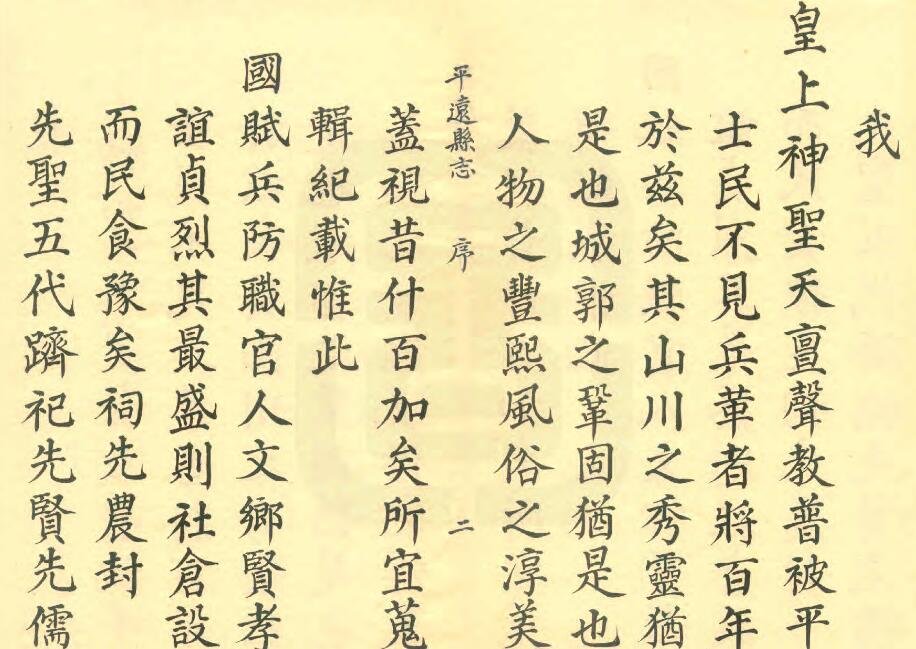 我
皇上神聖天亶聲教普被平
士民不見兵革者將百年
於茲矣其山川之秀靈猶
是也城郭之鞏固猶是也
人物之豐熙風俗之淳美
平遠縣志 序 二
蓋視昔什百加矣所宜蒐
輯紀載惟此
國賦兵防職官人文鄉賢孝
誼貞烈其最盛則社倉設
而民食豫矣祠先農封
先聖五代躋祀先賢先儒